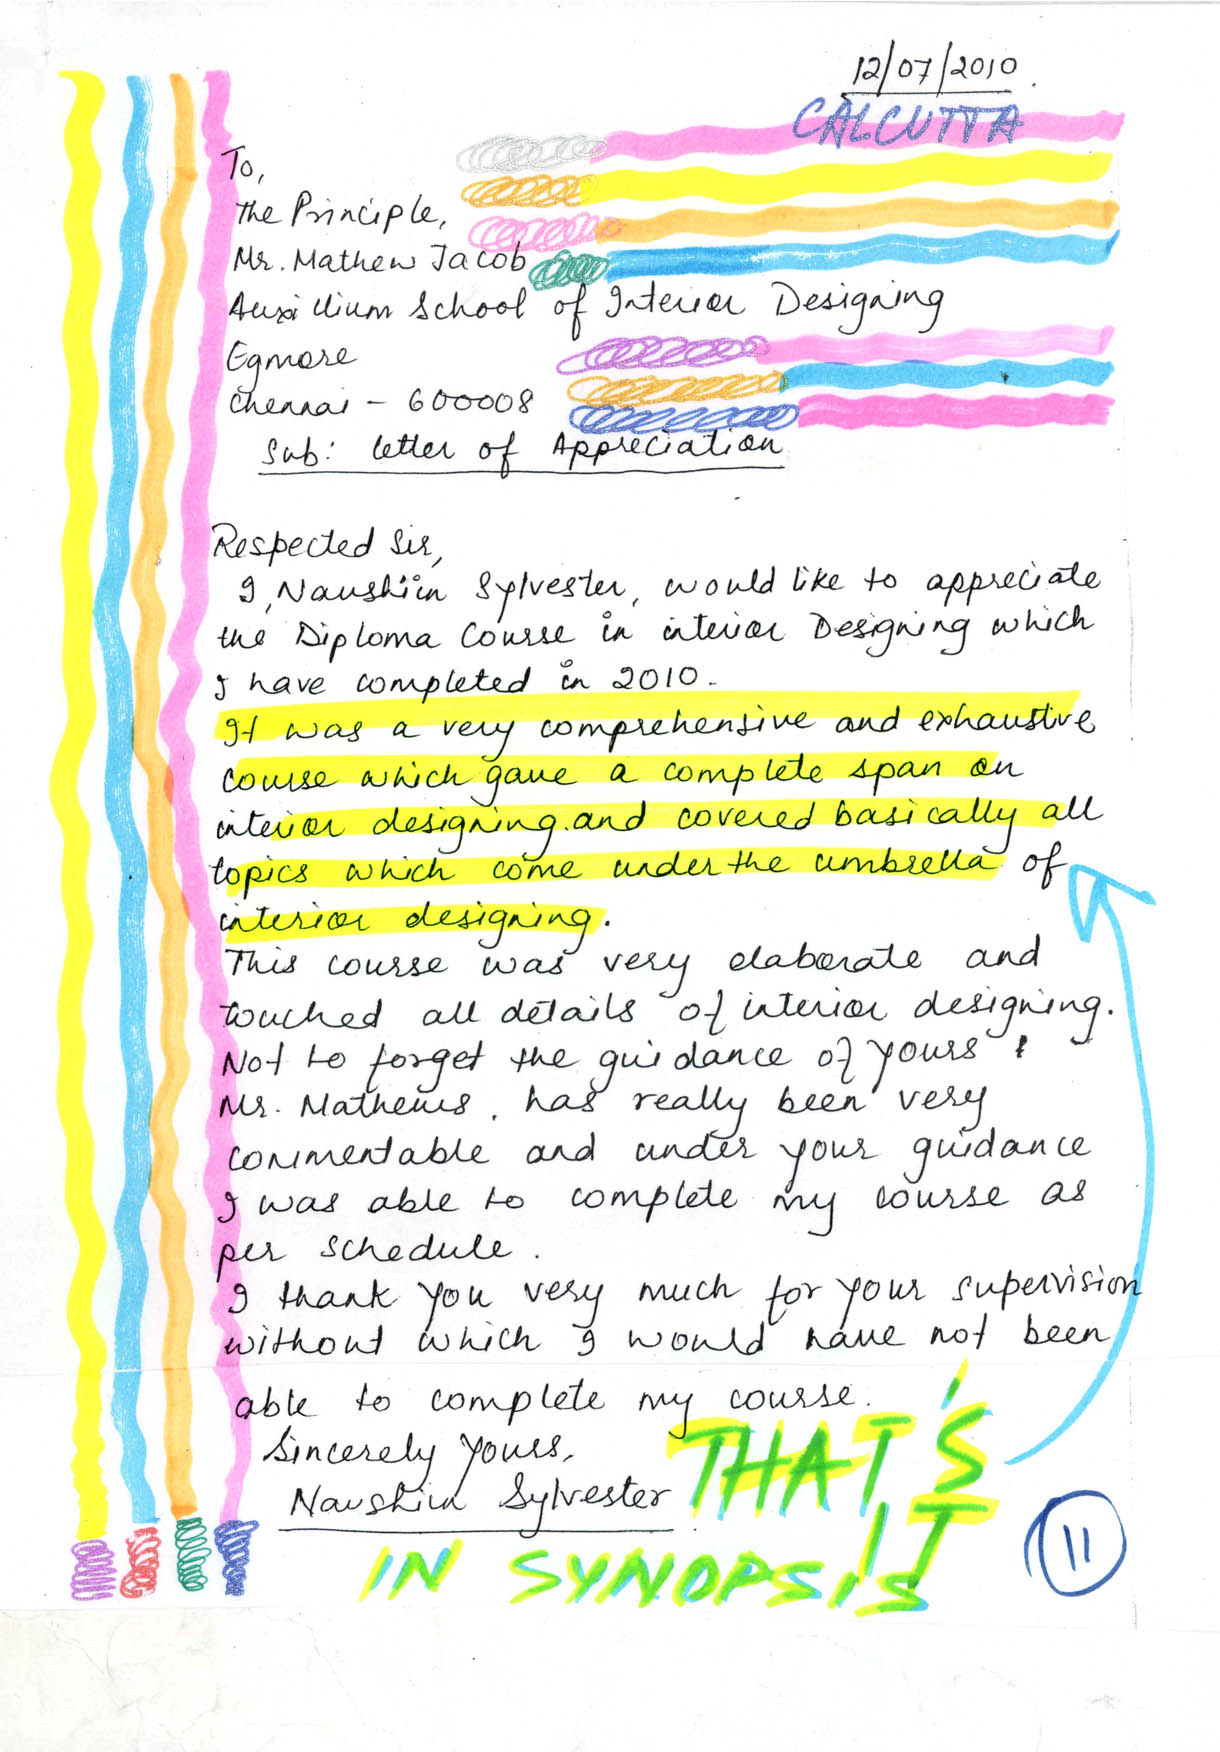 12/07/2010.
CALCUTTA
To,
The Principle,
Mr. Mathew Jacob
Auxillium School of Interior Designing
Egmore
Chennai - 600008
Sub: letter of Appreciation
Respected Sir,
I, Naushiin Sylvester, would like to appreciate
the Diploma Course in interior Designing which
I have completed in 2010.
It was a very comprehensive and exhaustive
course which gave a complete span on
interior designing and covered basically all
topics which come under the umbrella of
interior designing.
This course was very elaborate and
touched all details of interior designing.
Not to forget the guidance of yours,
Mr. Mathews, has really been very
commentable and under your guidance
I was able to complete my course as
per schedule.
I thank you very much for your supervision
without which I would have not been
able to complete my course.
Sincerely yours,
Naushiin Sylvester
THAT'S
IT
IN SYNOPSIS
11